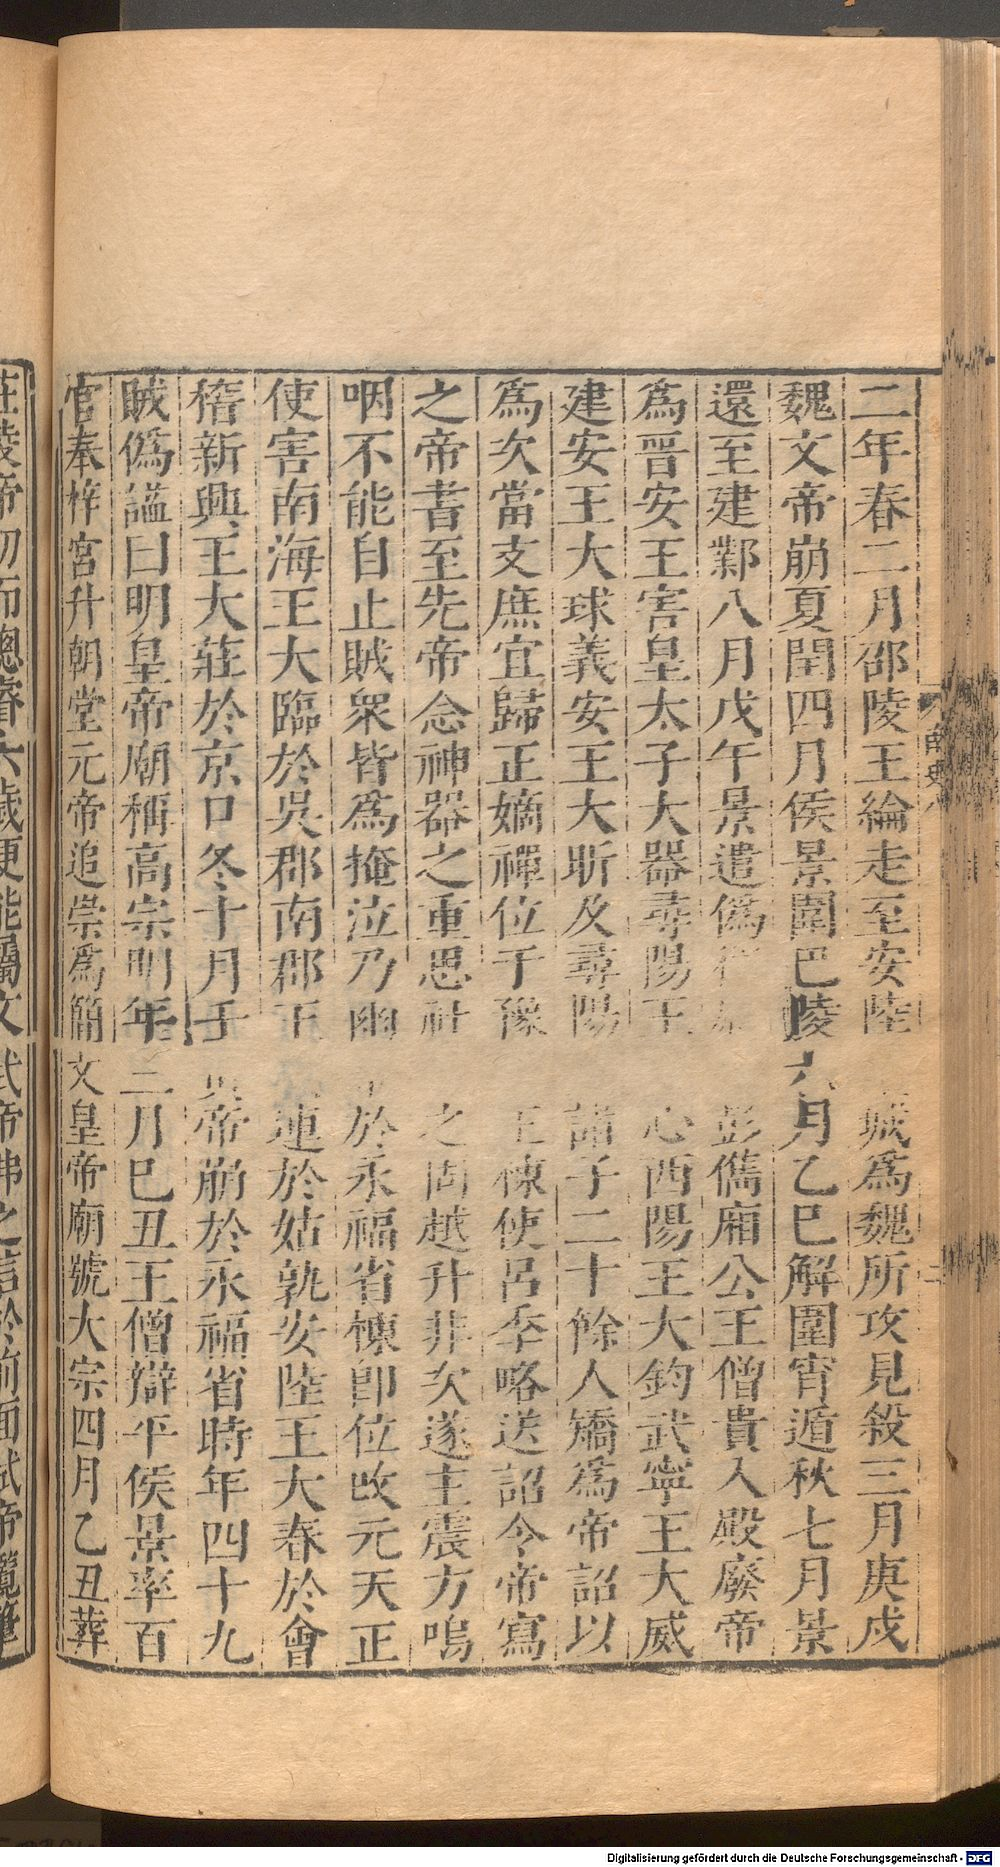 二年春二月邵陵王綸走至安陸城爲魏所攻見殺三月庚戌
魏文帝崩夏閏四月侯景圍巴陵六月乙巳解圍宵遁秋七月景
還至建鄴八月戊午景遣僞彭儁廂公王僧貴入殿廢帝
爲晉安王害皇太子大器尋陽王心西陽王大鈞武寧王大威
建安王大球義安王大昕及尋陽諸子二十餘人矯爲帝詔以
爲次當支庶宜歸正嫡禪位于豫王棟使呂季略送詔令帝寫
之帝書至先帝念神器之重思社之固越升非次遂主震方嗚
咽不能自止賊衆皆爲掩泣乃幽於永福省棟卽位改元天正
使害南海王大臨於吳郡南郡王連於姑孰安陸王大春於會
稽新興王大莊於京口冬十月帝崩於永福省時年四十九
賊僞謚曰明皇帝廟稱高宗明年三月巳丑王僧辯平侯景率百
官奉梓宮升朝堂元帝追崇爲簡文皇帝廟號大宗四月乙丑葬
莊陵帝幼而聰睿六歲便能屬文武帝弗之信於前面試帝攬筆
南史八
二
Digitalisierung gefördert durch die Deutsche Forschungsgemeinschaft - DFG